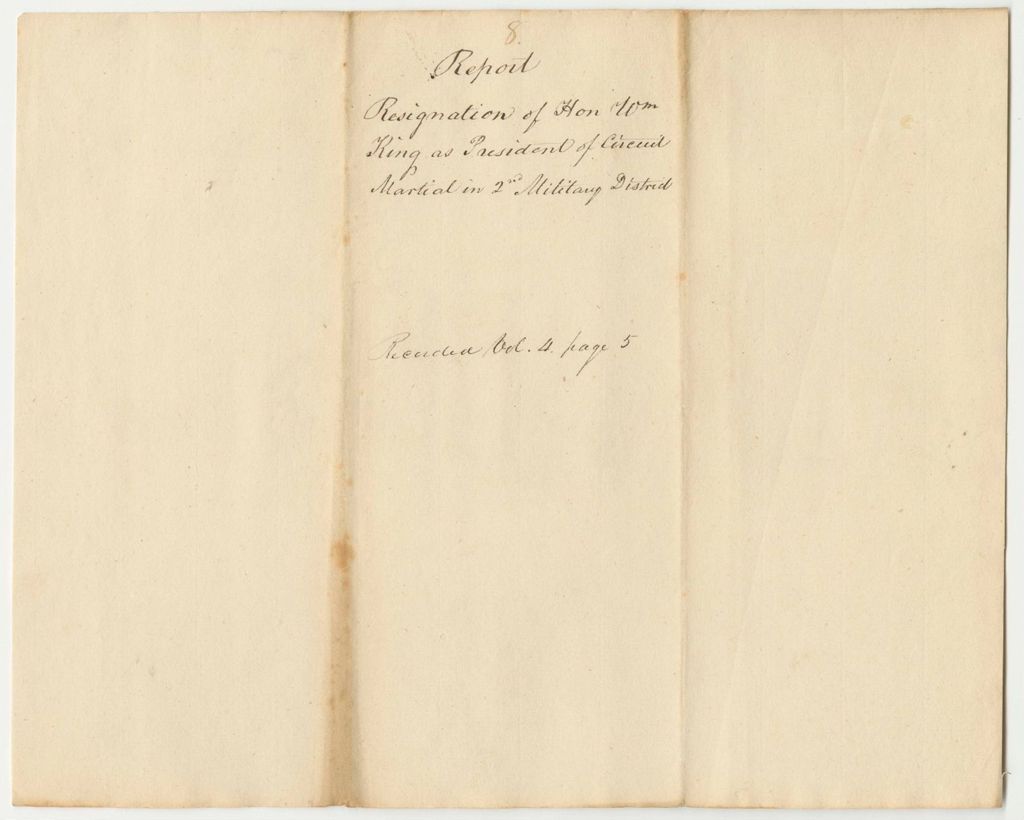 8.
Report
Resignation of Hon Wm
King as President of Circuit
Martial in 2nd Military District
Recorded Vol. 4. page 5